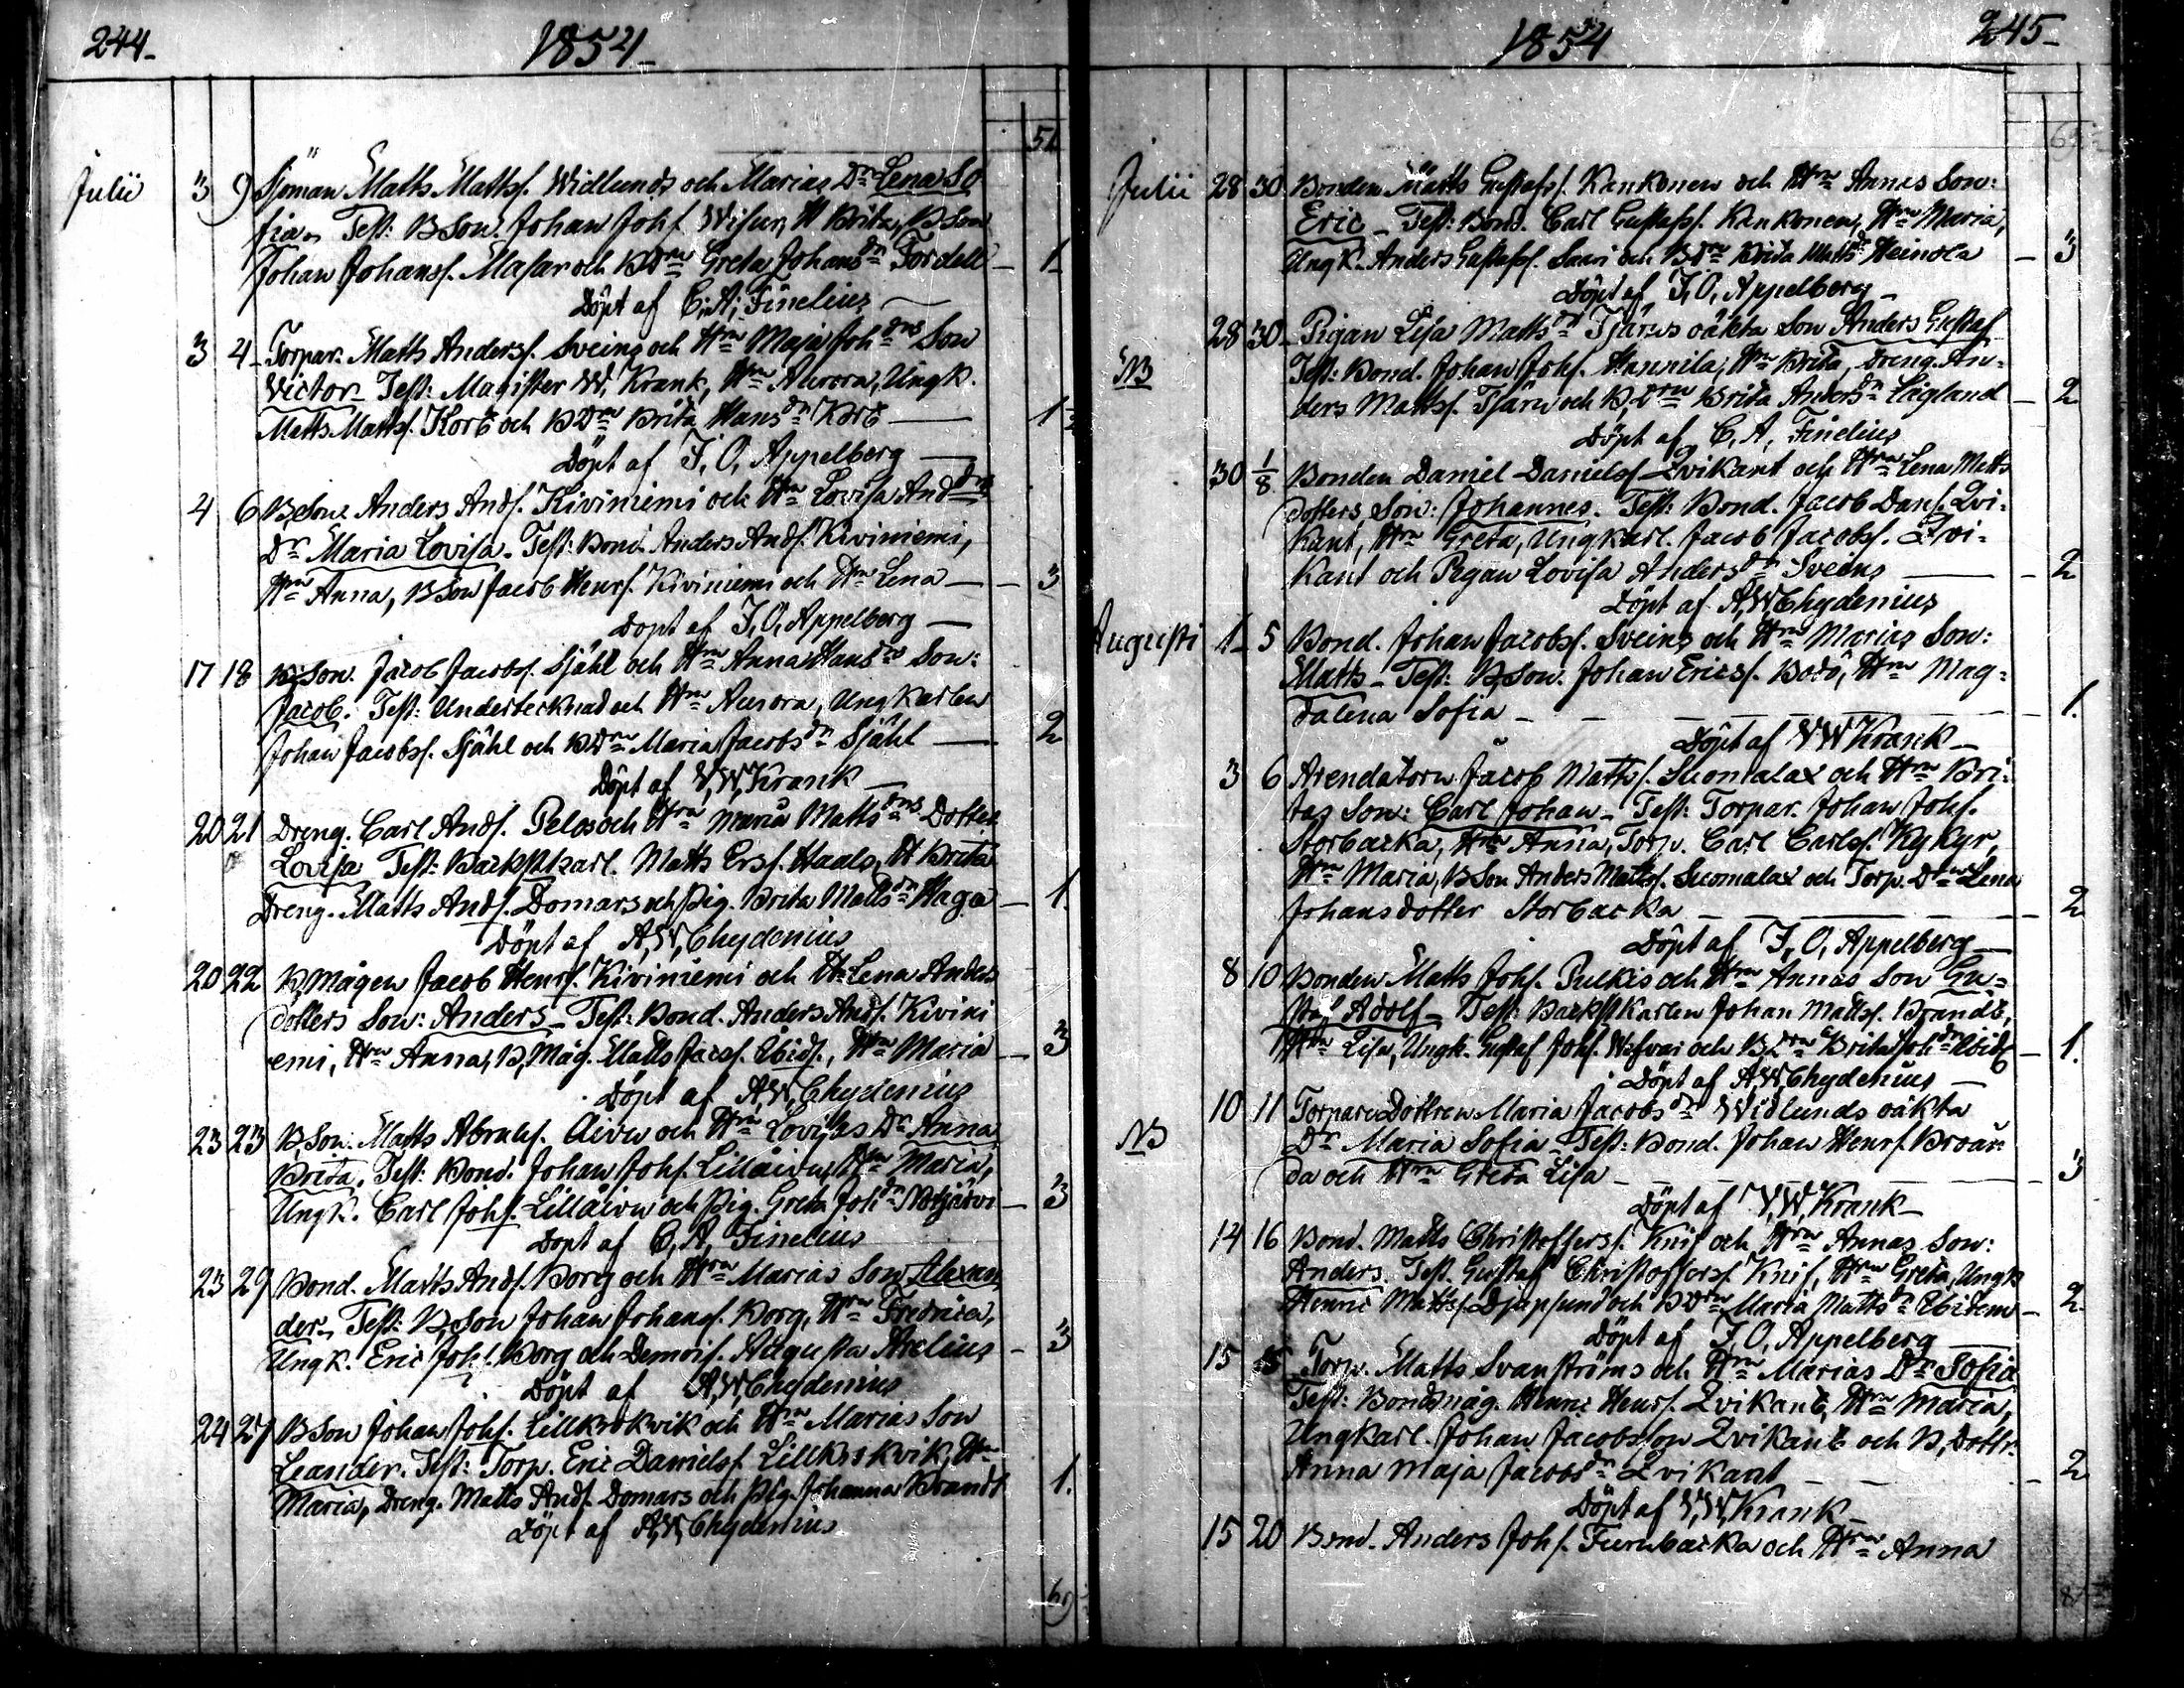 244-
1854-
51
Julii 3 9 Sjöman Matts Mattsf. Widlunds och Marias Dr Lena So
fia. Test: BSon. Johan Johf. Wisur, H Brita, BSon
Johan Johansf. Masar och BDrn Greta Johansdr Tordell - 1-
Döpt af C. A. Finelius
3 4 Torpar. Matts Andersf. Sveins och Hrn Maja Johdrs Son
Victor. Test: Magister W. Krank, Hrn Aurora, Ungk.
Matts Mattsf. Korb och BDrn Brita Hansdr Korb - 1
Döpt af J. O. Appelberg
4 6 B.Son. Anders Andf. Kiviniemi och Hrn Lovisa Anddrs
Dr Maria Lovisa. Test: Bond. Anders Andf. Kiviniemi,
Hrn Anna, BSon Jacob Henrf. Kiviniemi och Hrn Lena - 3
Döpt af J. O. Appelberg
17 18 B.Son. Jacob Jacobsf. Sjähl och Hrn Anna Hansdrs Son:
Jacob. Test: Undertecknad och Hrn Aurora, Ungkarlen
Johan Jacobsf. Sjähl och BDrn Maria Jacobsdr Sjähl - 2
Döpt af W. Krank
20 21 Dreng. Carl Andf. Pelos och Hrn Maria Mattsdrs Dotter
Lovisa Test: Backstkarl. Matts Ersf. Haals, H Brita
Dreng. Matts Andf. Domars och Pig. Brita Mattsdr Haga - 1.
Döpt af A. W. Chydenius
20 22 B,Mågen Jacob Henrf. Kiviniemi och H. Lena Anders
dotters Son: Anders. Test: Bond. Anders Andf. Kivini
emi, Hrn Anna, B, Måg. Matts Jacsf. Ibid., Hrn Maria - 3
Döpt af A. W. Chydenius
23 23 B.Son: Matts Abrahf. Åivu och Hrn Lovisas Dr Anna
Brita. Test: Bond. Johan Johf. Lillåivu, Hrn Maria,
Ungk. Carl Johf. Lillåivu och Pig. Greta Johdr - 3
Döpt af C. A. Finelius
23 29 Bond. Matts Andf. Borg och Hrn Marias Son Alexan
der. Test: B.Son Johan Johansf. Borg, Hrn Fredrica,
Ungk. Eric Johf. Borg och Demois. Augusta Arelius - 3
Döpt af A. W. Chydenius
24 27 BSon Johan Johf. Lillkrokvik och Hrn Marias Son
Leander. Test: Torp. Eric Danielsf. Lillkrokvik, Hrn
Maria, Dreng. Matts Andf. Domars och Pig. Johanna Brandt 1.
Döpt af A. W. Chydenius
69
1854
245-
69
Julii 28 30 Bonden Matts Gustafsf. Kankonen och Hrn Annas Son:
Eric - Test: Bond. Carl Gustafsf. Kankonen, Hrn Maria,
Ungk. Anders Gustafsf. Saari och BDrn Brita Mattsdr Heinola - 3
Döpt af J. O. Appelberg -
28 30 Pigan Lisa Mattsdr Tjärus oäkta Son Anders Gustaf
NB Test: Bond. Johan Johf. Hannila, Hrn Brita, Dreng. An-
ders Mattsf. Tjäru och B,Drn Brita Andersdr Lågland - 2
Döpt af C. A. Finelius
30 1/8 Bonden Daniel Danielsf. Qvikant och Hrn Lena Matts
dotters Son: Johannes. Test: Bond. Jacob Danf. Qvi-
kant, Hrn Greta, Ungkarl. Jacob Jacobsf. Qvi-
kant och Pigan Lovisa Andersdr Sveins - 2
Döpt af A. W. Chydenius
Augusti 1 5 Bond. Johan Jacobsf. Sveins och Hrn Marias Son:
Matts - Test: B,Son. Johan Ericsf. Bodö, Hrn Mag-
dalena Sofia - 1.
Döpt af W. Krank -
3 6 Arendatorn Jacob Mattsf. Suomalax och Hrn Bri-
tas Son: Carl Johan - Test: Torpar. Johan Johf.
Storbacka, Hrn Anna, Torp. Carl Carlsf. Kykyr,
Hrn Maria, BSon Anders Mattsf. Suomalax och Torp. Drn Lena
Johansdotter Storbacka - 2
Döpt af J. O. Appelberg
8 10 Bonden Matts Johf. Pulkis och Hrn Annas Son Gu-
staf Adolf - Test: BackstKarlen Johan Mattsf. Brandt,
Hrn Lisa, Ungk. Gustaf Johf. och BDrn Brita Johdr Ibid - 1.
Döpt af A. W. Chydenius
10 11 TorpareDottren Maria Jacobsdr Widlunds oäkta
NB Dr Maria Sofia - Test: Bond. Johan Henrf. Broän-
da och Hrn Greta Lisa - 3
Döpt af W. Krank
14 16 Bond. Matts Christoffersf. Knif och Hrn Annas Son:
Anders. Test. Gustaf Christoffersf. Knif, Hrn Greta, Ungk
Henric Mattsf. Djupsund och BDrn Maria Mattsdr Ibidem - 2
Döpt af J. O. Appelberg
15 15 Torp. Matts Svanströms och Hrn Marias Dr Sofia
Test: Bondsmåg. Henric Henrf. Qvikant, Hrn Maria,
Ungkarl. Johan Jacobsson Qvikant och B, Dottr.
Anna Maja Jacobsdr Qvikant - 2
Döpt af W. Krank
15 20 Bond. Anders Johf. Furubacka och Hrn Anna